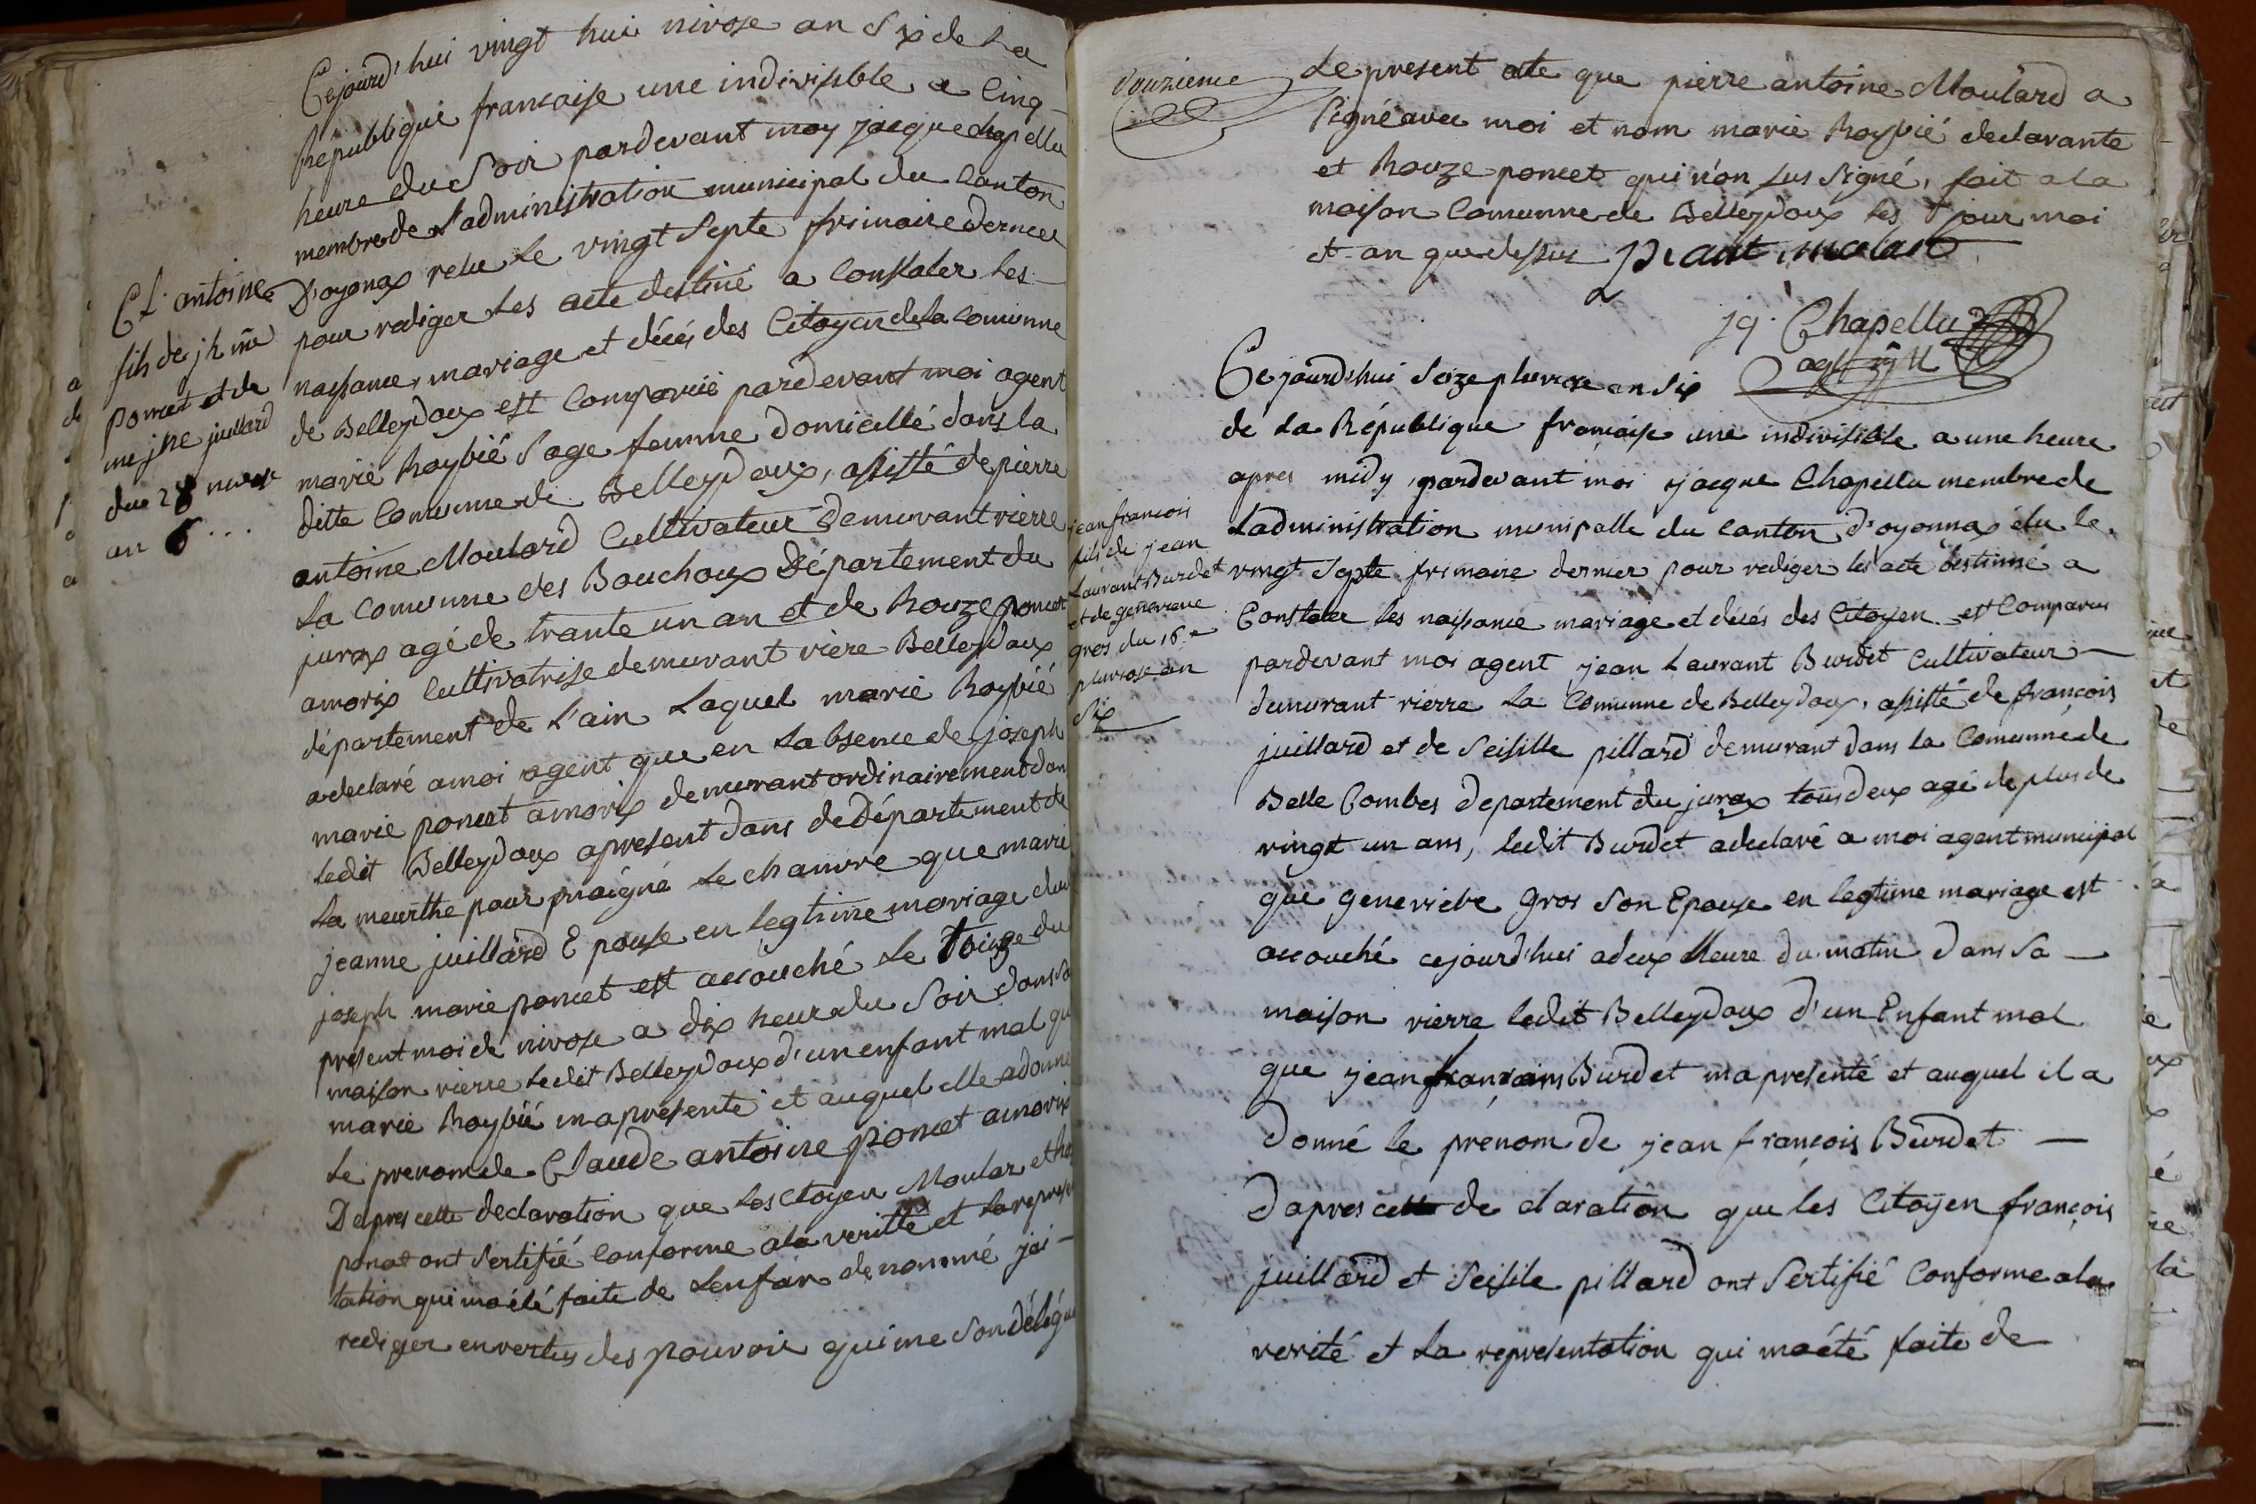 Cejourd'hui vingt hui nivose an Six de La
République francaise une indivisible a Cinq
heure du Soir pardevant moy jacque chapellu
membre de L'administration municipal du Canton
D'oyonax relu Le vingt Septe frimaire dernier
pour rediger Les acte destiné a Constater Les
naissance, mariage et décés des Citoyen de la Comunne
de Belleydoux est Comparue pardevant moi agent
marie Roybié Sage femme domicillé dans la
ditte Comunne de Belleydoux, assisté de pierre
antoine Moulard Cultivateur Demurant vierre
La Comunne des Bouchoux Département du
jurax agé de trante un an et de Rouze poncet
amorix Cultivatrise demurant viere Belleydoux
département de L'ain Laquel marie Roybié
a declaré a moi agent que en L'absence de joseph
marie poncet amorix demurant ordinairement dan
ledit Belleydoux apresent dans de Département de
La meurthe pour paigné Le chanvre que marie
jeanne juillard Epouse en legtime mariage du
joseph marie poncet est accouché Le
present moi de nivose a dix heur du Soir dans Sa
maison vierre ledit Belleydoux d'un enfant mal qu
marie Roybié ma presenté et auquel elle a donné
Le prenom de Claude antoine poncet amorix
D'apres cette declaration que Les Citoyen Moular et
poncet ont Sertifié Conforme a la veritté et La represen
tation qui ma été faite de Lenfan denommé jai
rediger en vertus des pouvoir qui me Son délégué
Cl. antoine
fils de jh me
poncet et de
me jne juillard
du 28 nivose
an 6...
Douzieme
Le present acte que pierre antoine Moulard a
Signé avec moi et nom marie Roybié declarante
et Rouze poncet qui n'on Sus Signé, fait a La
maison Comunne de Belleydoux Les jour moi
et an que dessus pi ant. molard
jq. Chapellu
agt
Ce jourd'hui Seize pluviose an Six
de La République francaise une indivisible a une heure
apres midy, pardevant moi jacque Chapellu membre de
Ladministration munipalle du Canton d'oyonnax élu le
vingt Septe frimaire dernier pour rediger les acte destinné a
Constater les naissance mariage et décés des Citoyen est Comparus
pardevant moi agent jean Laurant Burdet Cultivateur
demurant vierre La Comunne de Belleydoux, assisté de françois
juillard et de Seisille pillard demurant dans La Comunne de
Belle Combes departement du jurax tous deux agé de plus de
vingt un ans, ledit Burdet a declaré a moi agent municipal
que genevieve gros Son Epouse en legtime mariage est
accouché cejourd'hui a deux Heure du matin dans Sa
maison vierre ledit Belleydoux d'un Enfant mal
que jean françois Burdet ma presenté et auquel il a
donné le prenom de jean françois Burdet
Dapres cette declaration que les Citoyen françois
juillard et Seisile pillard ont Sertifié Conforme a la
verité et La representation qui ma été faite de
jean francois
fils de jean
Laurant Burdet
et de genevieve
gros du 16e
pluviose an
Six